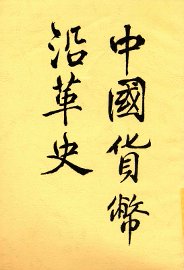 中國貨幣
沿革史